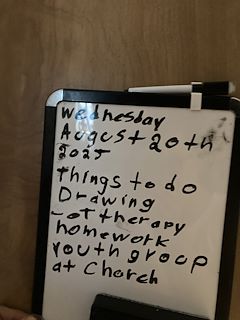 Wednesday
August 20th
2025
Things to do
Drawing
-ot therapy
homework
Youth group
at Church